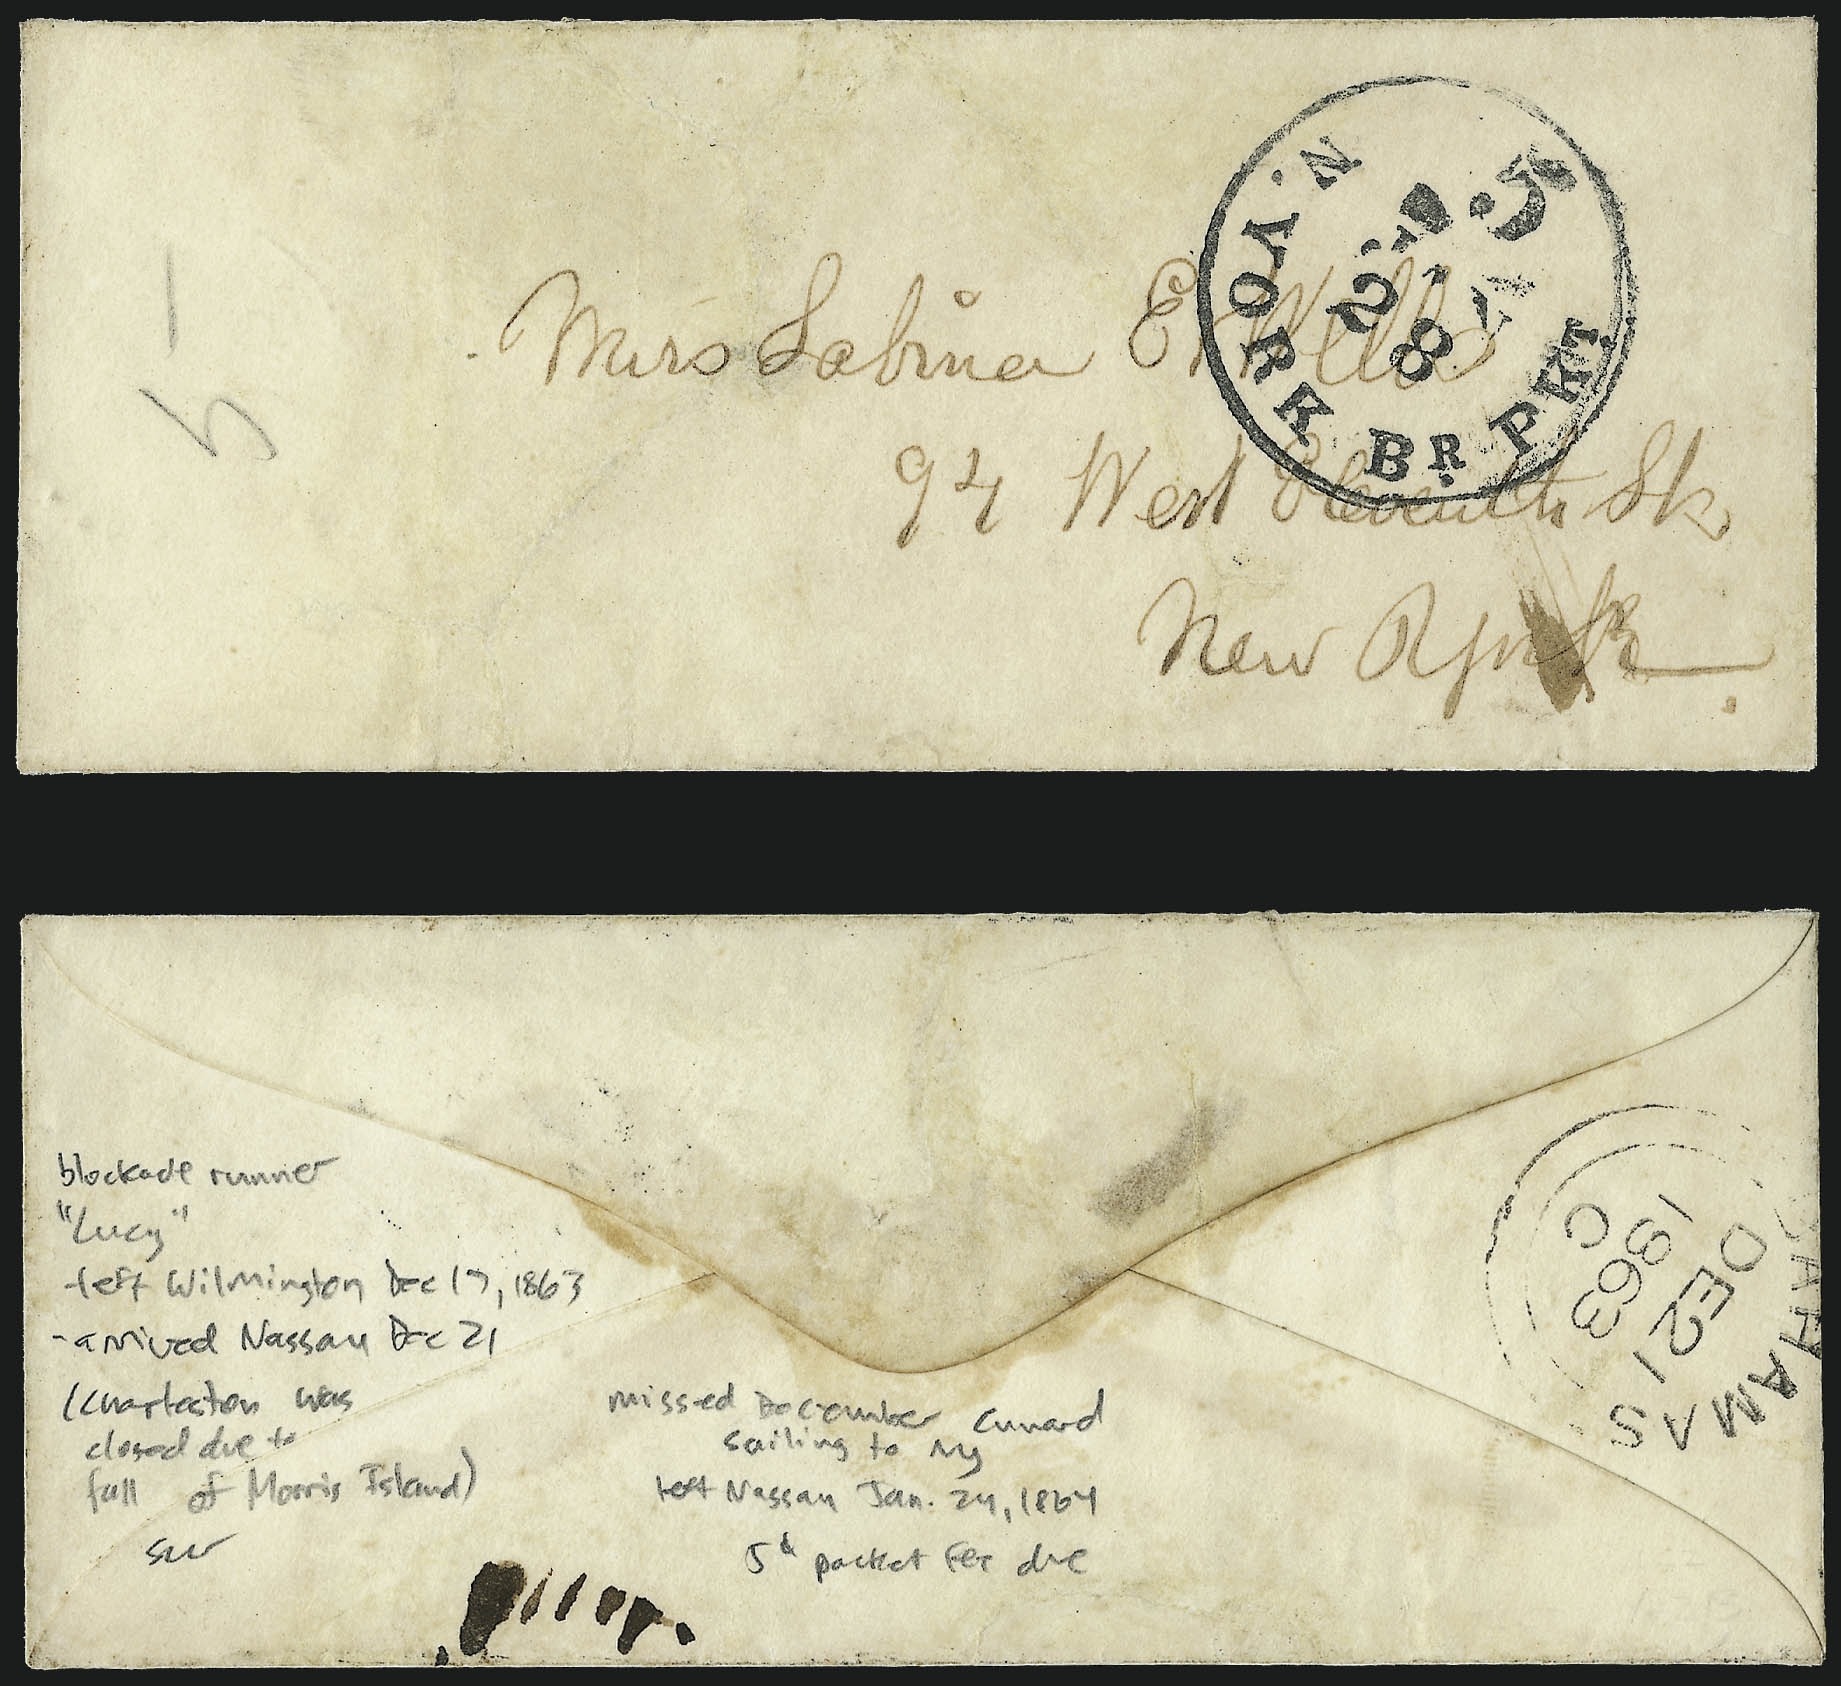 Miss Sabina E. Wells
94 West Eleventh St.
New York
N. YORK BR. PKT.
5
28
5
blockade runner
"Lucy"
-left Wilmington Dec 17, 1863
-arrived Nassau Dec 21
(Charleston was
closed due to
fall of Morris Island)
missed December Cunard
sailing to NY
left Nassau Jan. 24, 1864
5¢ packet fee due
BAHAMAS
C
1863
DE 21